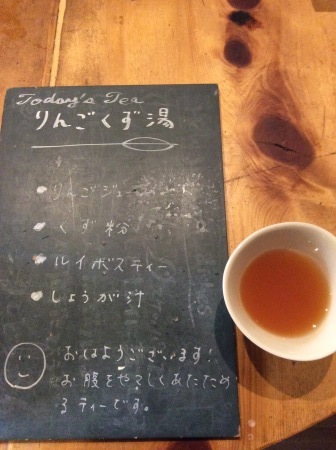 Today's Tea
りんごくず湯
くず粉
ルイボスティー
しょうが汁
おはようございます!
お腹をやさしくあたため
るティーです。